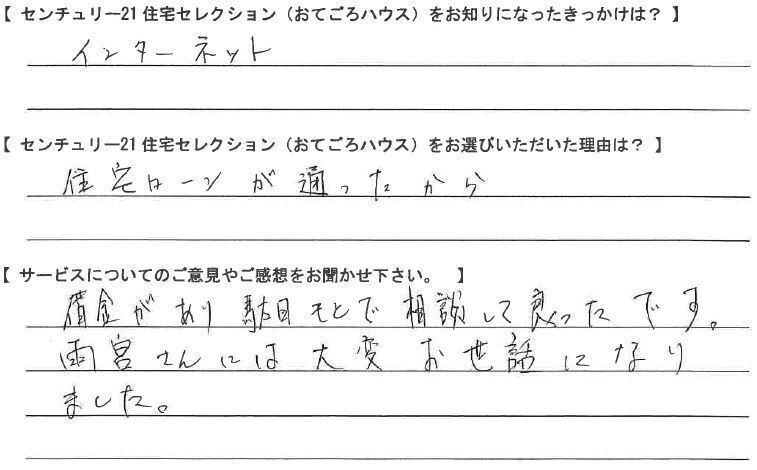 【 センチュリー21 住宅セレクション（おてごろハウス）をお知りになったきっかけは？ 】
インターネット
【 センチュリー21 住宅セレクション（おてごろハウス）をお選びいただいた理由は？ 】
住宅ローンが通ったから
【 サービスについてのご意見やご感想をお聞かせ下さい。 】
借金があり駄目モとで相談して良ったです。
雨宮さんには大変お世話になり
ました。